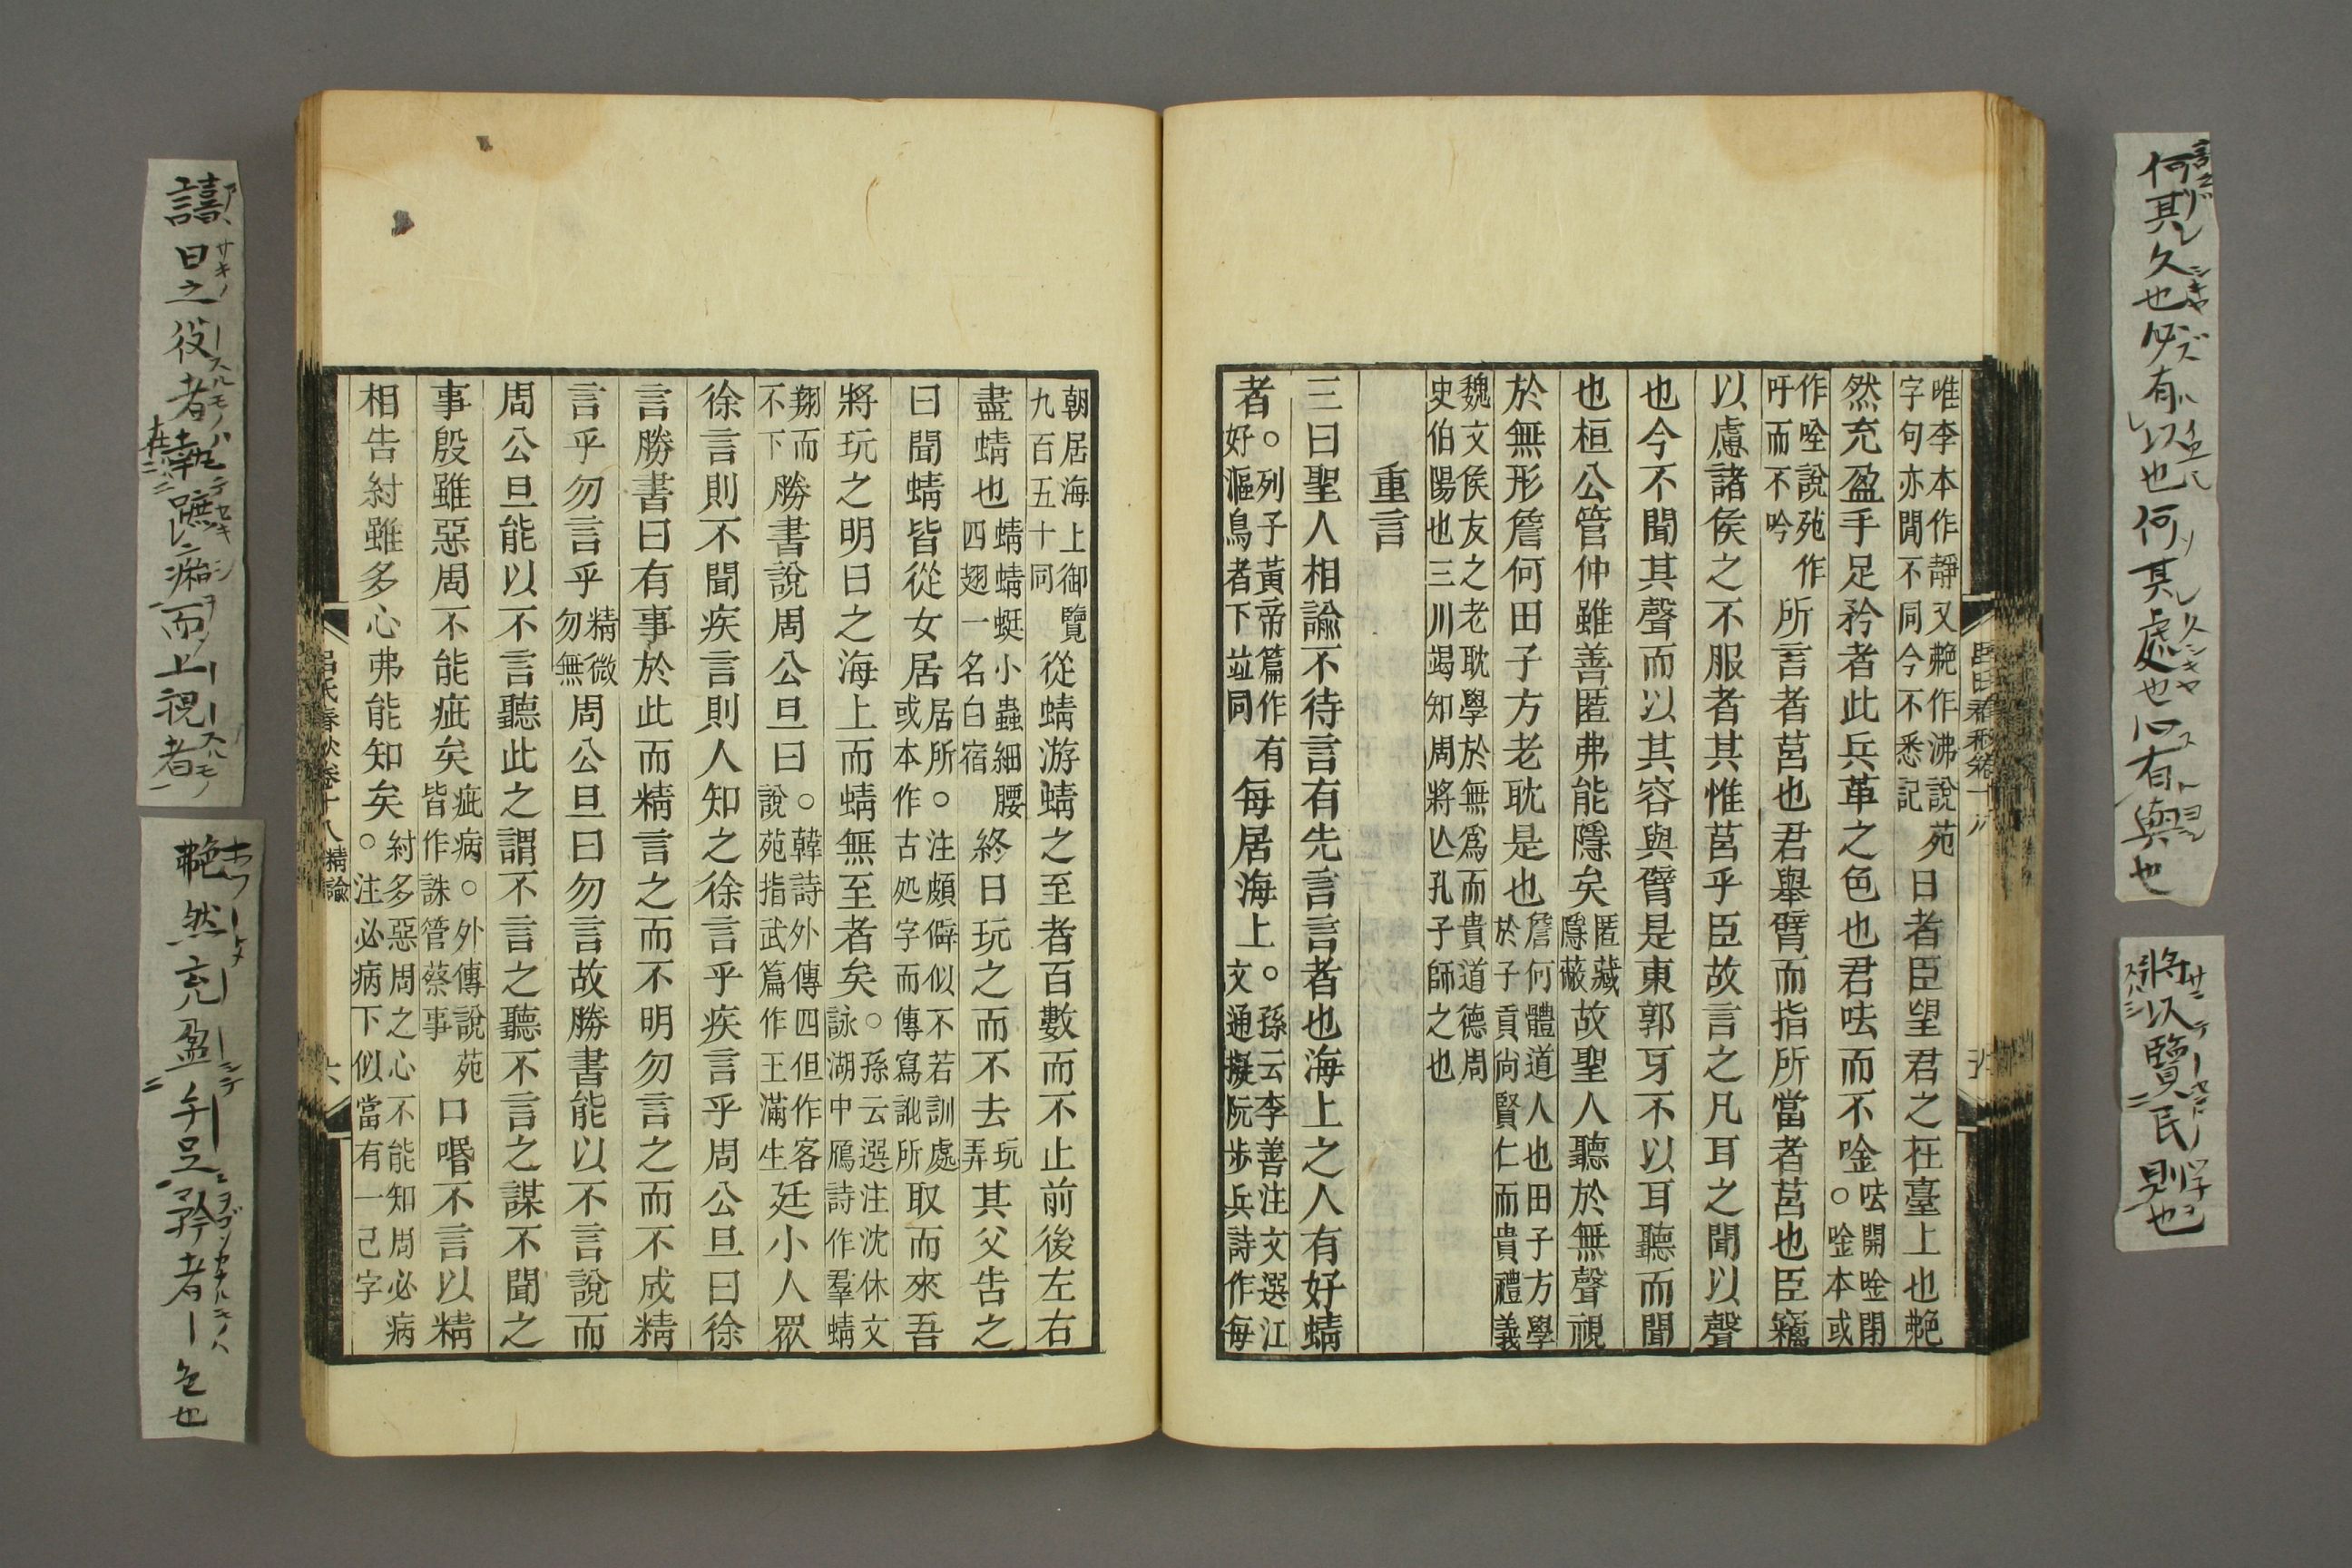 言之
何其久也必有以也何其處也必有與也
將以覽民則也
唯李本作靜又艴作沸說苑字句亦閒不同今不悉記日者臣望君之在臺上也艴
然充盈手足矜者此兵革之色也君呿而不唫呿開唫閉○唫本或
作唫說苑作吁而不吟所言者莒也君舉臂而指所當者莒也臣竊
以慮諸侯之不服者其惟莒乎臣故言之凡耳之聞以聲
也今不聞其聲而以其容與臂是東郭牙不以耳聽而聞
也桓公管仲雖善匿弗能隱矣匿藏隱蔽故聖人聽於無聲視
於無形詹何田子方老耽是也詹何體道人也田子方學於子貢尙賢仁而貴禮義
魏文侯友之老耽學於無爲而貴道德周史伯陽也三川竭知周將亾孔子師之也
重言
三曰聖人相諭不待言有先言言者也海上之人有好蜻
者○列子黃帝篇作有好漚鳥者下竝同每居海上○孫云李善注文選江文通擬阮步兵詩作每
朝居海上御覽九百五十同從蜻游蜻之至者百數而不止前後左右
盡蜻也蜻蜻蜓小蟲細腰四翅一名白宿終日玩之而不去玩弄其父告之
曰聞蜻皆從女居居所○注頗僻似不若訓處或本作古処字而傳寫訛所取而來吾
將玩之明日之海上而蜻無至者矣○孫云選注沈休文詠湖中鴈詩作羣蜻
翔而不下勝書說周公旦曰○韓詩外傳四但作客說苑指武篇作王滿生廷小人眾
徐言則不聞疾言則人知之徐言乎疾言乎周公旦曰徐
言勝書曰有事於此而精言之而不明勿言之而不成精
言乎勿言乎精微勿無周公旦曰勿言故勝書能以不言說而
周公旦能以不言聽此之謂不言之聽不言之謀不聞之
事殷雖惡周不能疵矣疵病○外傳說苑皆作誅管蔡事口㖧不言以精
相告紂雖多心弗能知矣紂多惡周之心不能知周必病○注必病下似當有一己字
呂氏春秋卷十八 精諭 六
譆日之役者執蹠𤺊而上視者
艴然充盈手足矜者ー色也